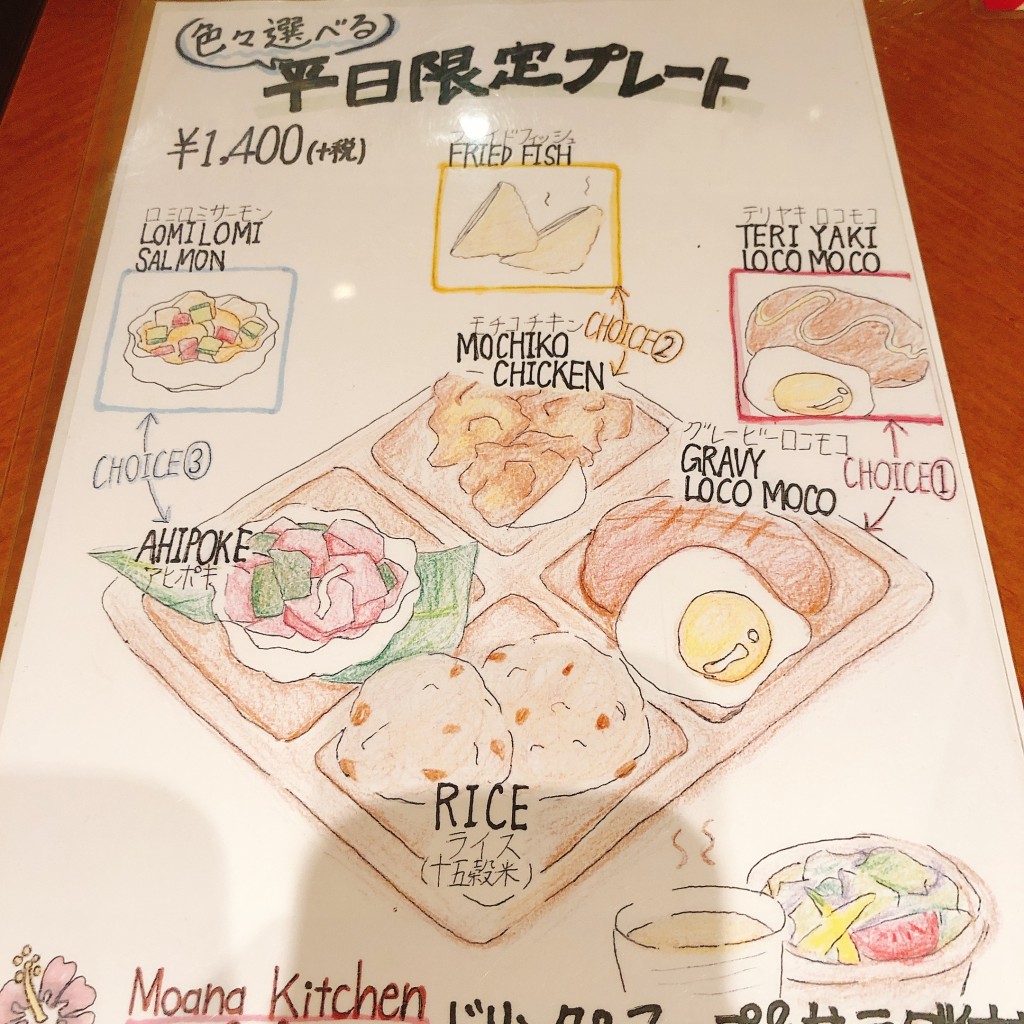 色々選べる
平日限定プレート
¥1,400(+税)
フライドフィッシュ
FRIED FISH
ロミロミサーモン
LOMILOMI
SALMON
テリヤキ ロコモコ
TERIYAKI
LOCO MOCO
CHOICE②
モチコチキン
MOCHIKO
CHICKEN
グレービーロコモコ
GRAVY
LOCO MOCO
CHOICE①
CHOICE③
AHIPOKE
アヒポキ
RICE
ライス
(十五穀米)
Moana Kitchen